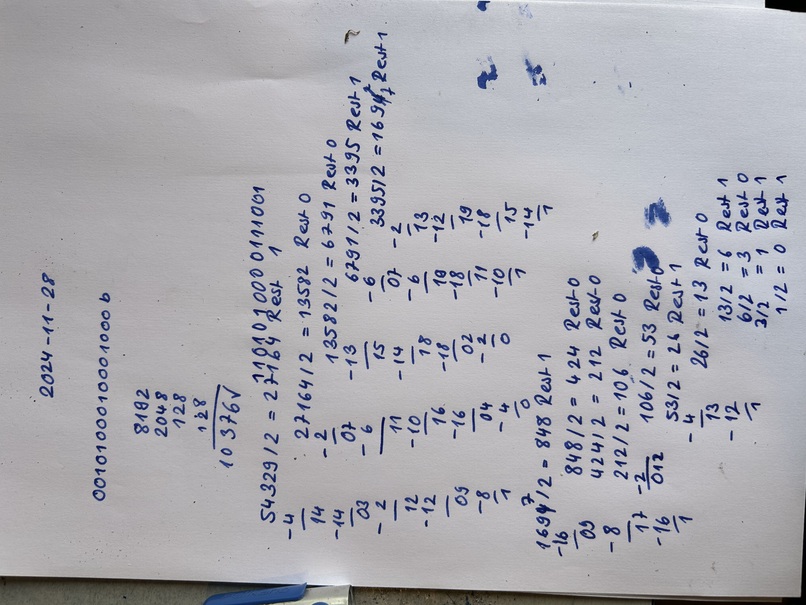 2024-11-28
0010100010001000b
8192
2048
128
128
10376√
1101010000111001
54329/2 = 27164 Rest 1
-4
14
-14
03
-2
12
-12
09
-8
1
27164/2 = 13582 Rest 0
-2
07
-6
11
-10
16
-16
04
-4
0
13582/2 = 6791 Rest 0
-13
15
-14
18
-18
02
-2
0
6791/2 = 3395 Rest 1
-6
07
-6
19
-18
11
-10
1
3395/2 = 1697 Rest 1
7
-2
13
-12
19
-18
15
-14
1
1697/2 = 848 Rest 1
7
-16
09
-8
17
-16
1
848/2 = 424 Rest 0
424/2 = 212 Rest 0
212/2 = 106 Rest 0
-2
012
106/2 = 53 Rest 0
53/2 = 26 Rest 1
-4
13
-12
1
26/2 = 13 Rest 0
13/2 = 6 Rest 1
6/2 = 3 Rest 0
3/2 = 1 Rest 1
1/2 = 0 Rest 1